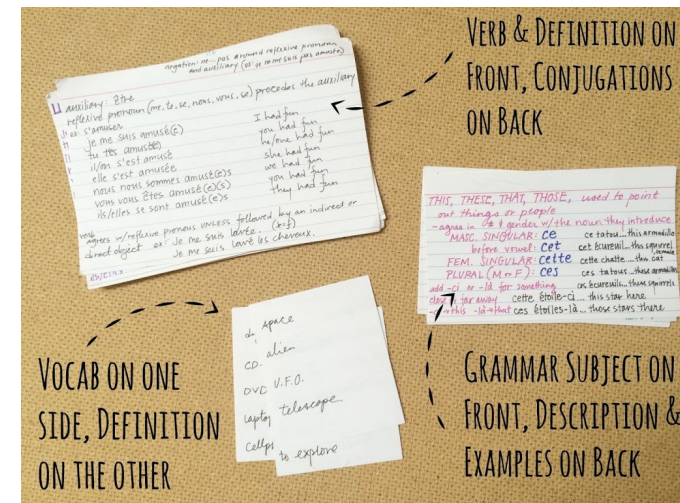 VERB & DEFINITION ON
FRONT, CONJUGATIONS
ON BACK
negation: ne...pas around reflexive pronoun
and auxiliary (ex: je ne me suis pas amusée)
auxiliary: être
reflexive pronoun (me, te, se, nous, vous, se) precedes the auxiliary
ex: s'amuser
je me suis amusé(e) I had fun
tu t'es amusé(e) you had fun
il/on s'est amusé he/one had fun
elle s'est amusée she had fun
nous nous sommes amusé(e)s we had fun
vous vous êtes amusé(e)(s) you had fun
ils/elles se sont amusé(e)s they had fun
verb
agrees w/reflexive pronouns UNLESS followed by an indirect or
direct object ex: Je me suis lavée.
Je me suis lavé les cheveux.
THIS, THESE, THAT, THOSE, used to point
out things or people
-agree in # & gender w/the noun they introduce
MASC. SINGULAR: ce ce tatou...this armadillo
before vowel: cet cet écureuil...this squirrel
FEM. SINGULAR: cette cette chatte...this cat
female
PLURAL (M or F): ces ces tatous...these armadillos
add -ci or -là for something ces écureuils...these squirrels
close/far away cette étoile-ci...this star here
-ci→this -là→that ces étoiles-là...those stars there
space
CD alien
DVD U.F.O.
laptop telescope
cellph
to explore
VOCAB ON ONE
SIDE, DEFINITION
ON THE OTHER
GRAMMAR SUBJECT ON
FRONT, DESCRIPTION &
EXAMPLES ON BACK